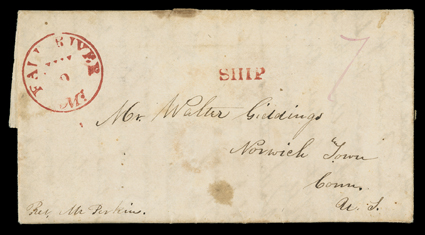 FALL RIVER
Ms.
SHIP
7
Mr. Walter Giddings
Norwich Town
Conn.
U. S.
Mr Perkin.